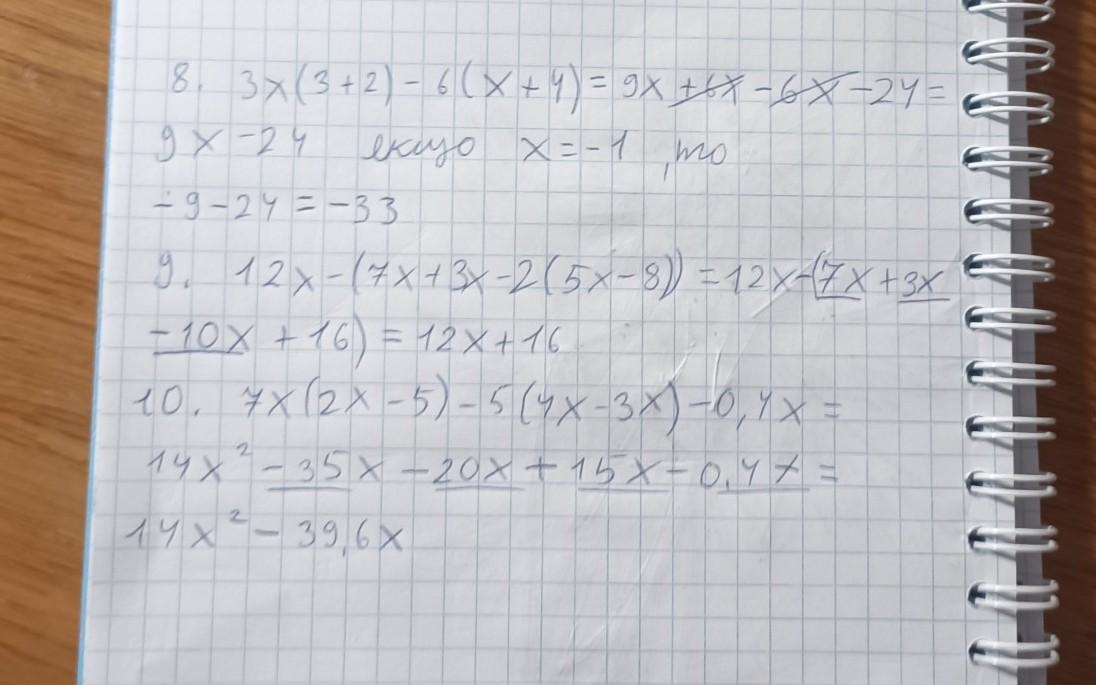 8. 3x(3+2)-6(x+4)=9x+6x-6x-24=
9x-24 якщо x=-1, то
-9-24=-33
9. 12x-(7x+3x-2(5x-8))=12x-(7x+3x
-10x+16)=12x+16
10. 7x(2x-5)-5(4x-3x)-0,4x=
14x²-35x-20x+15x-0,4x=
14x²-39,6x